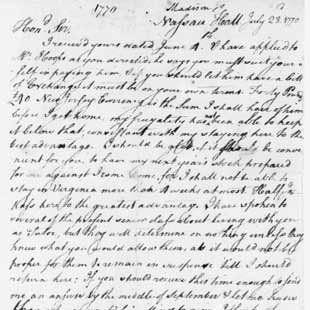 1770 Madison
Nassau Hall July 23. 1770
Hond. Sir.
I receiv'd yours dated June 4th. & have applied to
Mr. Hoops as you directed; he says you must suit your
self in paying him, & if you should let him have a bill
of Exchange it must be on your own terms. Forty Pounds
£40 New Jersey Currency is the Sum I shall have of him
before I get home, my frugality has been able to keep
it below that, consistent with my staying here to the
best advantage. I should be glad, if it should be conve
nient for you, to have my next year's stock prepared
for me against I come home, for I shall not be able to
stay in Virginia more than 4 weeks at most. Half Jo's
pass here to the greatest advantage. I have spoken to
several of the present senior class about living with you
as Tutor, but they will determine on nothing unless they
knew what you would allow them, as it would not be
proper for them to remain in suspense till I should
return here; If you should receive this time enough to send
me an answer by the middle of September & let me know